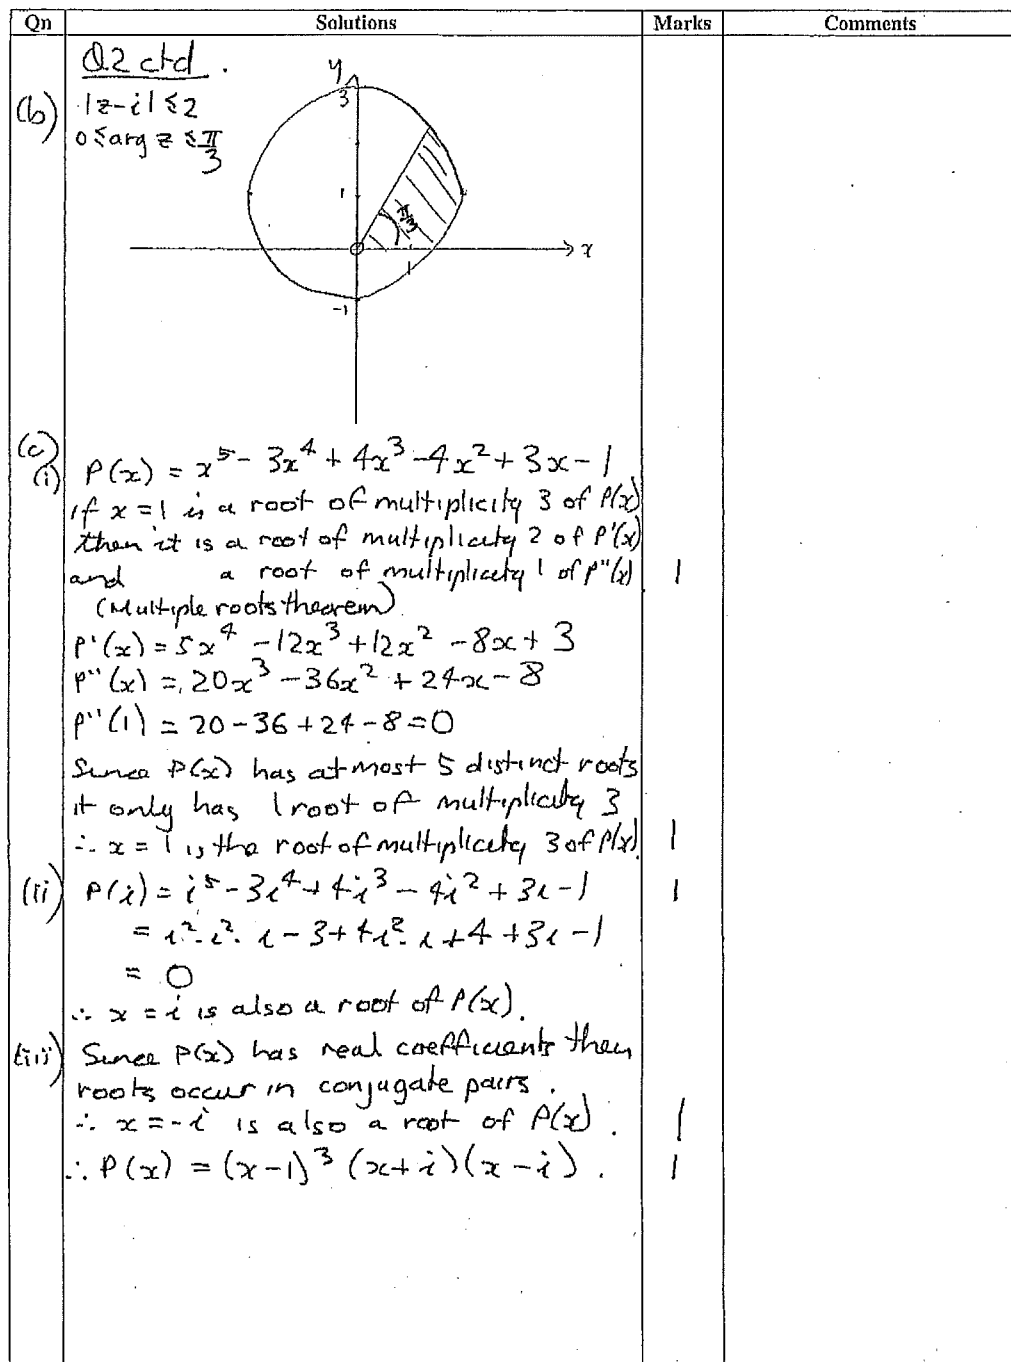 Qn Solutions Marks Comments
Q.2 ctd.
(b) |z-i| ≤ 2
0 ≤ arg z ≤ π/3
y
3
1
π/3
1
x
-1
(c)
(i) P(x) = x⁵ - 3x⁴ + 4x³ - 4x² + 3x - 1
if x = 1 is a root of multiplicity 3 of P(x)
then it is a root of multiplicity 2 of P'(x)
and a root of multiplicity 1 of P''(x) 1
(Multiple roots theorem)
P'(x) = 5x⁴ - 12x³ + 12x² - 8x + 3
P''(x) = 20x³ - 36x² + 24x - 8
P''(1) = 20 - 36 + 24 - 8 = 0
Since P(x) has at most 5 distinct roots
it only has 1 root of multiplicity 3
∴ x = 1 is the root of multiplicity 3 of P(x). 1
(ii) P(i) = i⁵ - 3i⁴ + 4i³ - 4i² + 3i - 1 1
= i².i².i - 3 + 4i².i + 4 + 3i - 1
= 0
∴ x = i is also a root of P(x).
(iii) Since P(x) has real coefficients then
roots occur in conjugate pairs.
∴ x = -i is also a root of P(x). 1
∴ P(x) = (x-1)³ (x+i)(x-i). 1